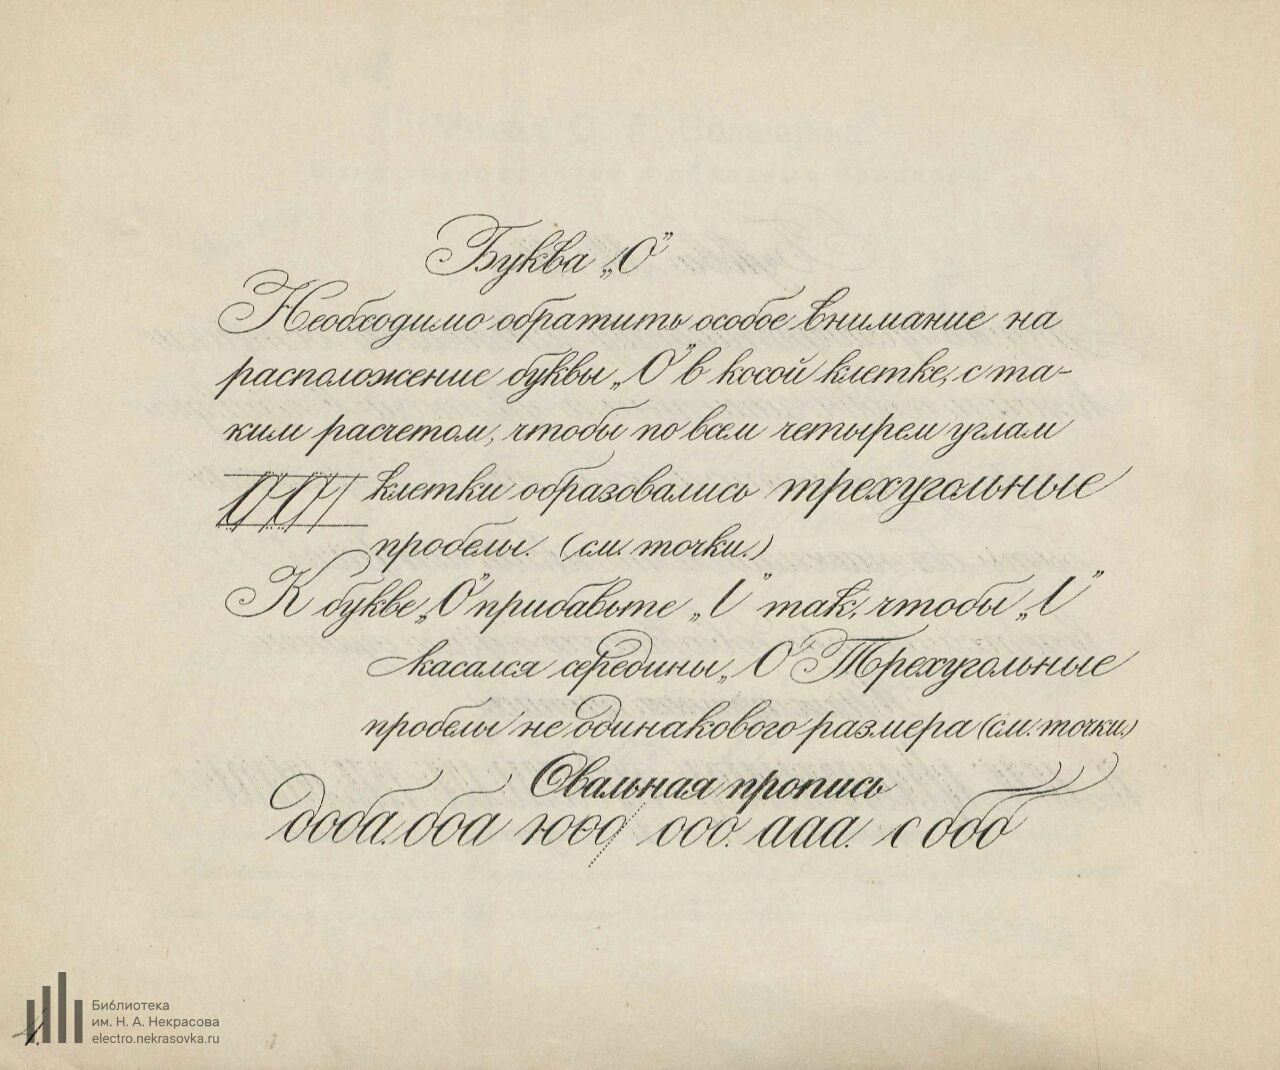 Буква „О”
Необходимо обратить особое внимание на
расположение буквы „О” в косой клетке, с та-
ким расчетом, чтобы по всем четырем углам
клетки образовались трехугольные
пробелы. (см. точки.)
К букве „О” прибавьте „l” так, чтобы „l”
касался середины „О” Трехугольные
пробелы не одинакового размера (см. точки.)
Овальная пропись
доба. ооа юоо ооо. ааа. с обб
Библиотека
им. Н. А. Некрасова
electro.nekrasovka.ru